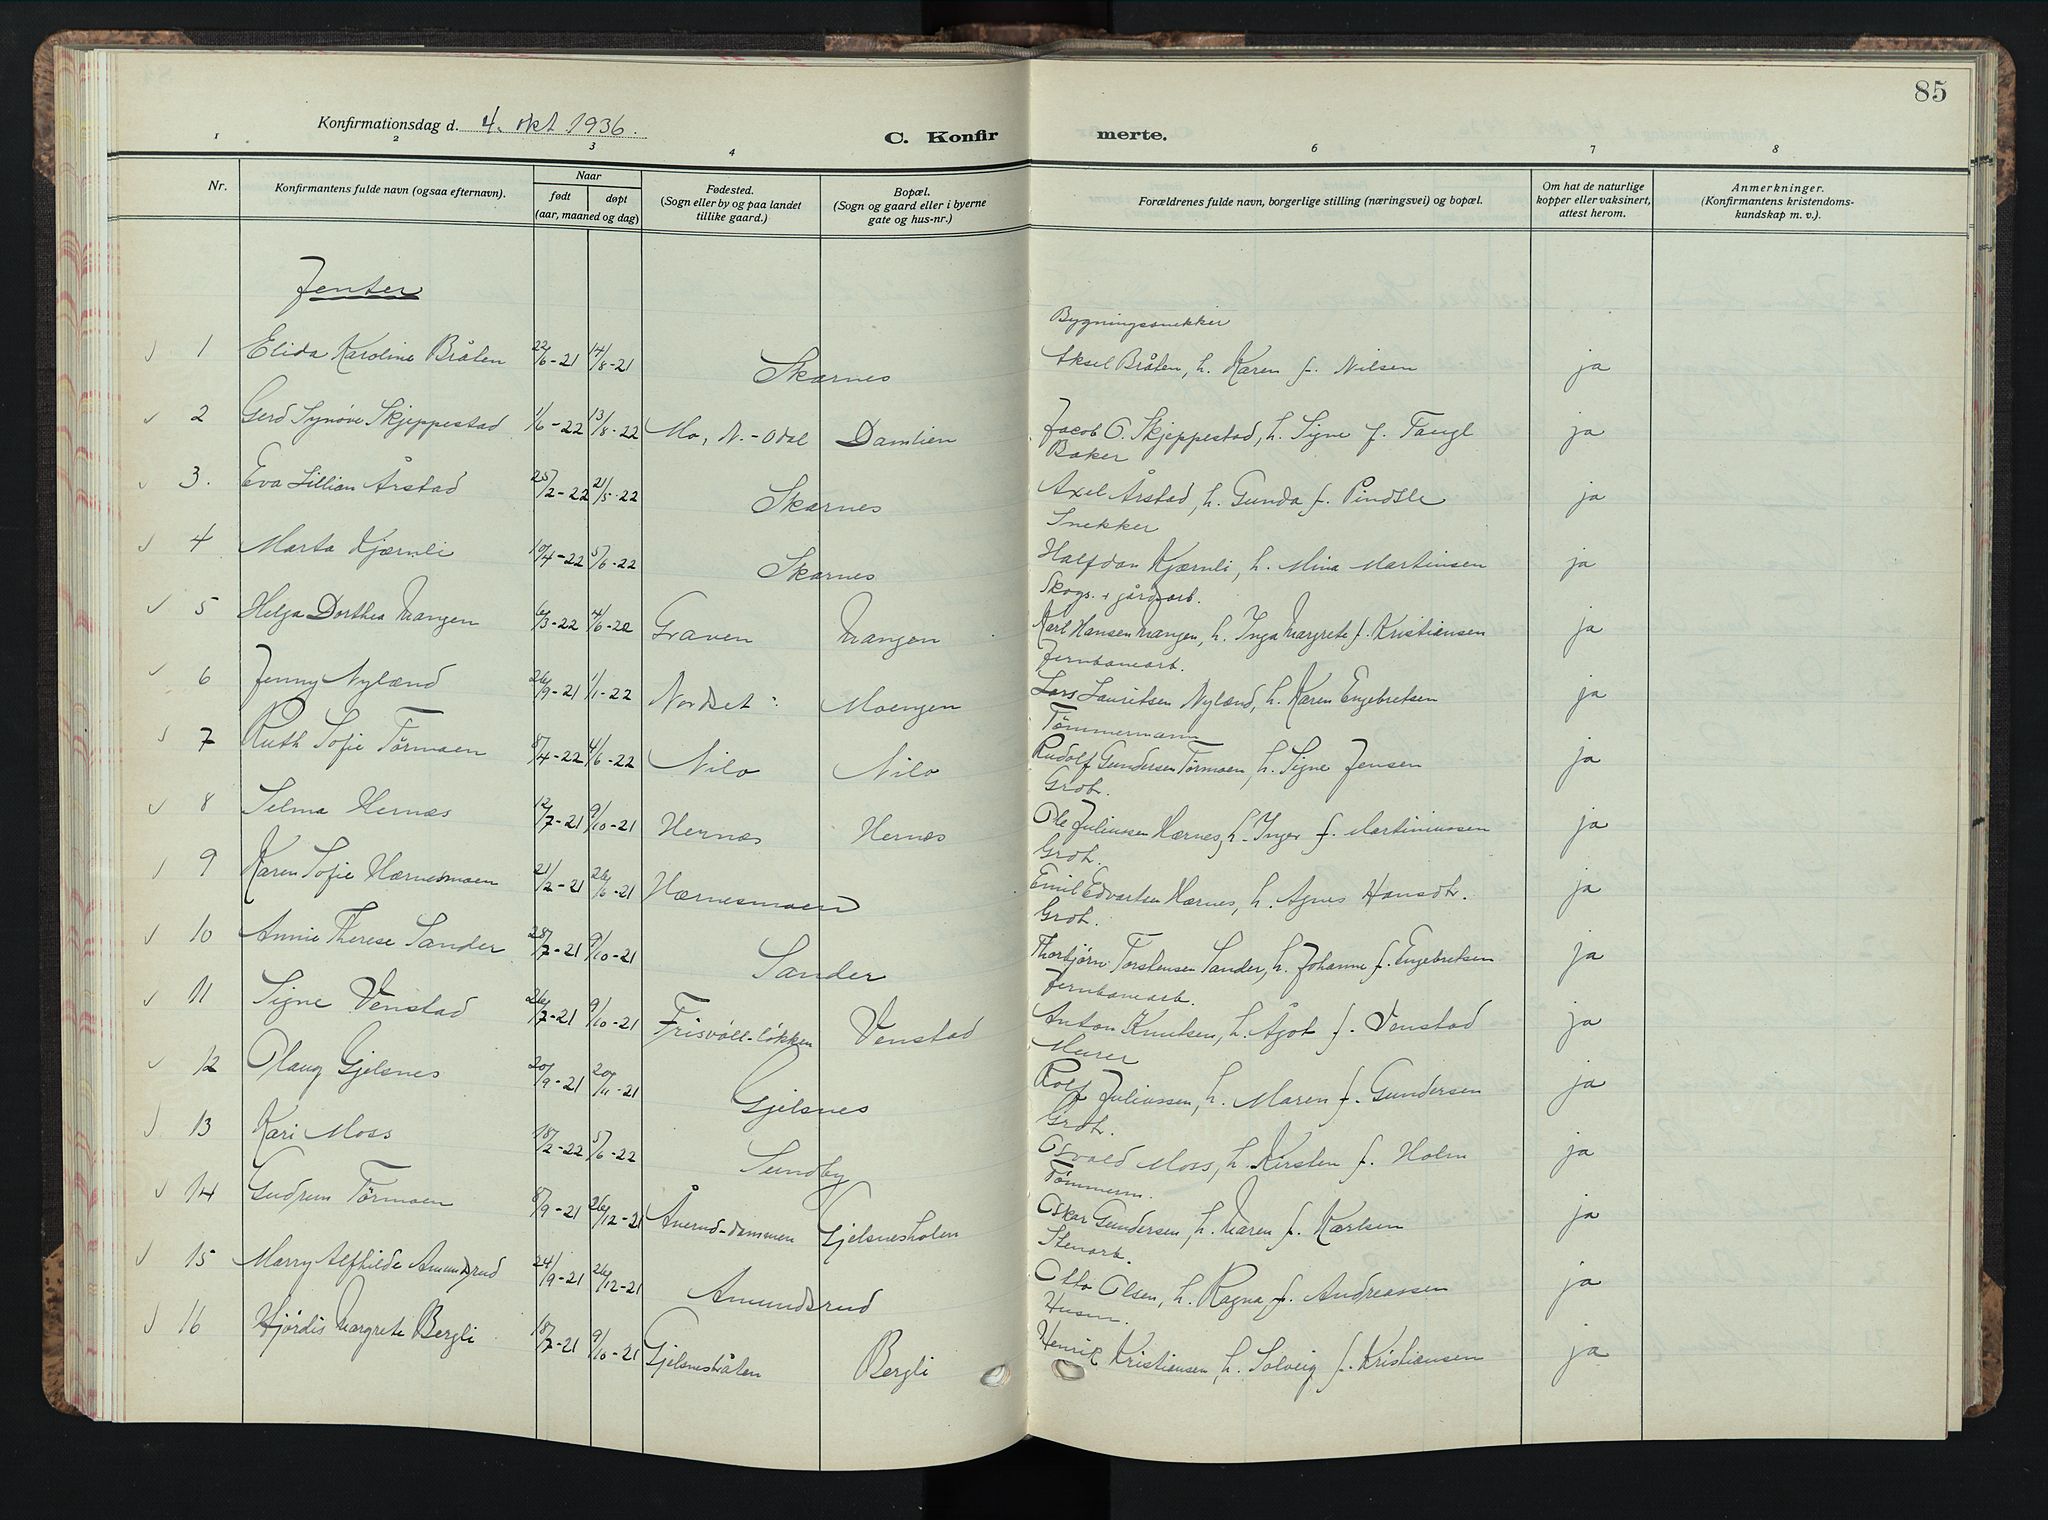 85
Konfirmationsdag d. 4. okt 1936.
C. Konfirmerte.
1 2 3 4 6 7 8
Nr.
Konfirmantens fulde navn (ogsaa efternavn).
Naar
født døpt
(aar, maaned og dag)
Fødested.
(Sogn eller by og paa landet
tillike gaard.)
Bopæl.
(Sogn og gaard eller i byerne
gate og hus-nr.)
Forældrenes fulde navn, borgerlige stilling (næringsvei) og bopæl.
Om hat de naturlige
kopper eller vaksinert,
attest herom.
Anmerkninger.
(Konfirmantens kristendoms-
kundskap m. v.).
Jenter
Bygningssnekker
1 Elida Karoline Bråten 22/6-21 14/8-21 Skarnes Aksel Bråten, h. Karen f. Nilsen ja
2 Gerd Synøve Skjeppestad 1/6-22 13/8-22 Mo, N.-Odal Damlien Jacob O. Skjeppestad, h. Signe f. Taugl ja
Baker
3. Eva Lillian Årstad 25/2-22 21/5-22 Skarnes Axel Årstad, h. Gunda f. Pindsle ja
Snekker
4 Marta Kjærnli 10/4-22 5/6-22 Skarnes Halfdan Kjærnli, h. Mina Martinsen ja
Skogs. + gårdsarb.
5 Helga Dorthea Mangen 6/3-22 4/6-22 Graven Mangen Karl Hansen Mangen, h. Inga Margrete f. Kristiansen ja
Jernbanearb.
6 Jenny Nyland 26/9-21 1/1-22 Nordset Moengen Lars Lauritsen Nyland, h. Karen Engebretsen ja
Tømmermann
7 Ruth Sofie Tørmoen 8/4-22 4/6-22 Nilo Nilo Rudolf Gundersen Tørmoen, h. Signe Jensen ja
Grdb.
8 Selma Hernes 12/7-21 9/10-21 Hernes Hernes Ole Juliussen Hernes, h. Inger f. Martiniussen ja
Grdb.
9 Karen Sofie Hærnesmoen 21/2-21 26/6-21 Hærnesmoen Emil Edvartsen Hærnes, h. Agnes Hansdtr. ja
Grdb.
10 Annie Therese Sander 28/7-21 9/10-21 Sander Thorbjørn Torstensen Sander, h. Johanne f. Engebretsen ja
Jernbanearb.
11 Signe Venstad 26/7-21 9/10-21 Frisvoll-løkken Venstad Anton Knutsen, h. Ågot f. Venstad ja
Murer
12 Olaug Gjelsnes 20/9-21 20/11-21 Gjelsnes Rolf Juliussen, h. Maren f. Gundersen ja
Grdb.
13 Kari Moss 18/2-22 5/6-22 Sundby Osvald Moss, h. Kirsten f. Holm ja
Tømmerm.
14 Gudrun Tørmoen 8/9-21 26/12-21 Ånerud-dammen Gjelsnesholen Oskar Gundersen, h. Maren f. Karlsen ja
Stenarb.
15 Marry Alfhilde Amundsrud 24/9-21 26/12-21 Amundsrud Otto Olsen, h. Ragna f. Andreassen ja
Husm.
16 Hjørdis Margrete Bergli 18/7-21 9/10-21 Gjelsnesbråten Bergli Henrik Kristiansen, h. Solveig f. Kristiansen ja